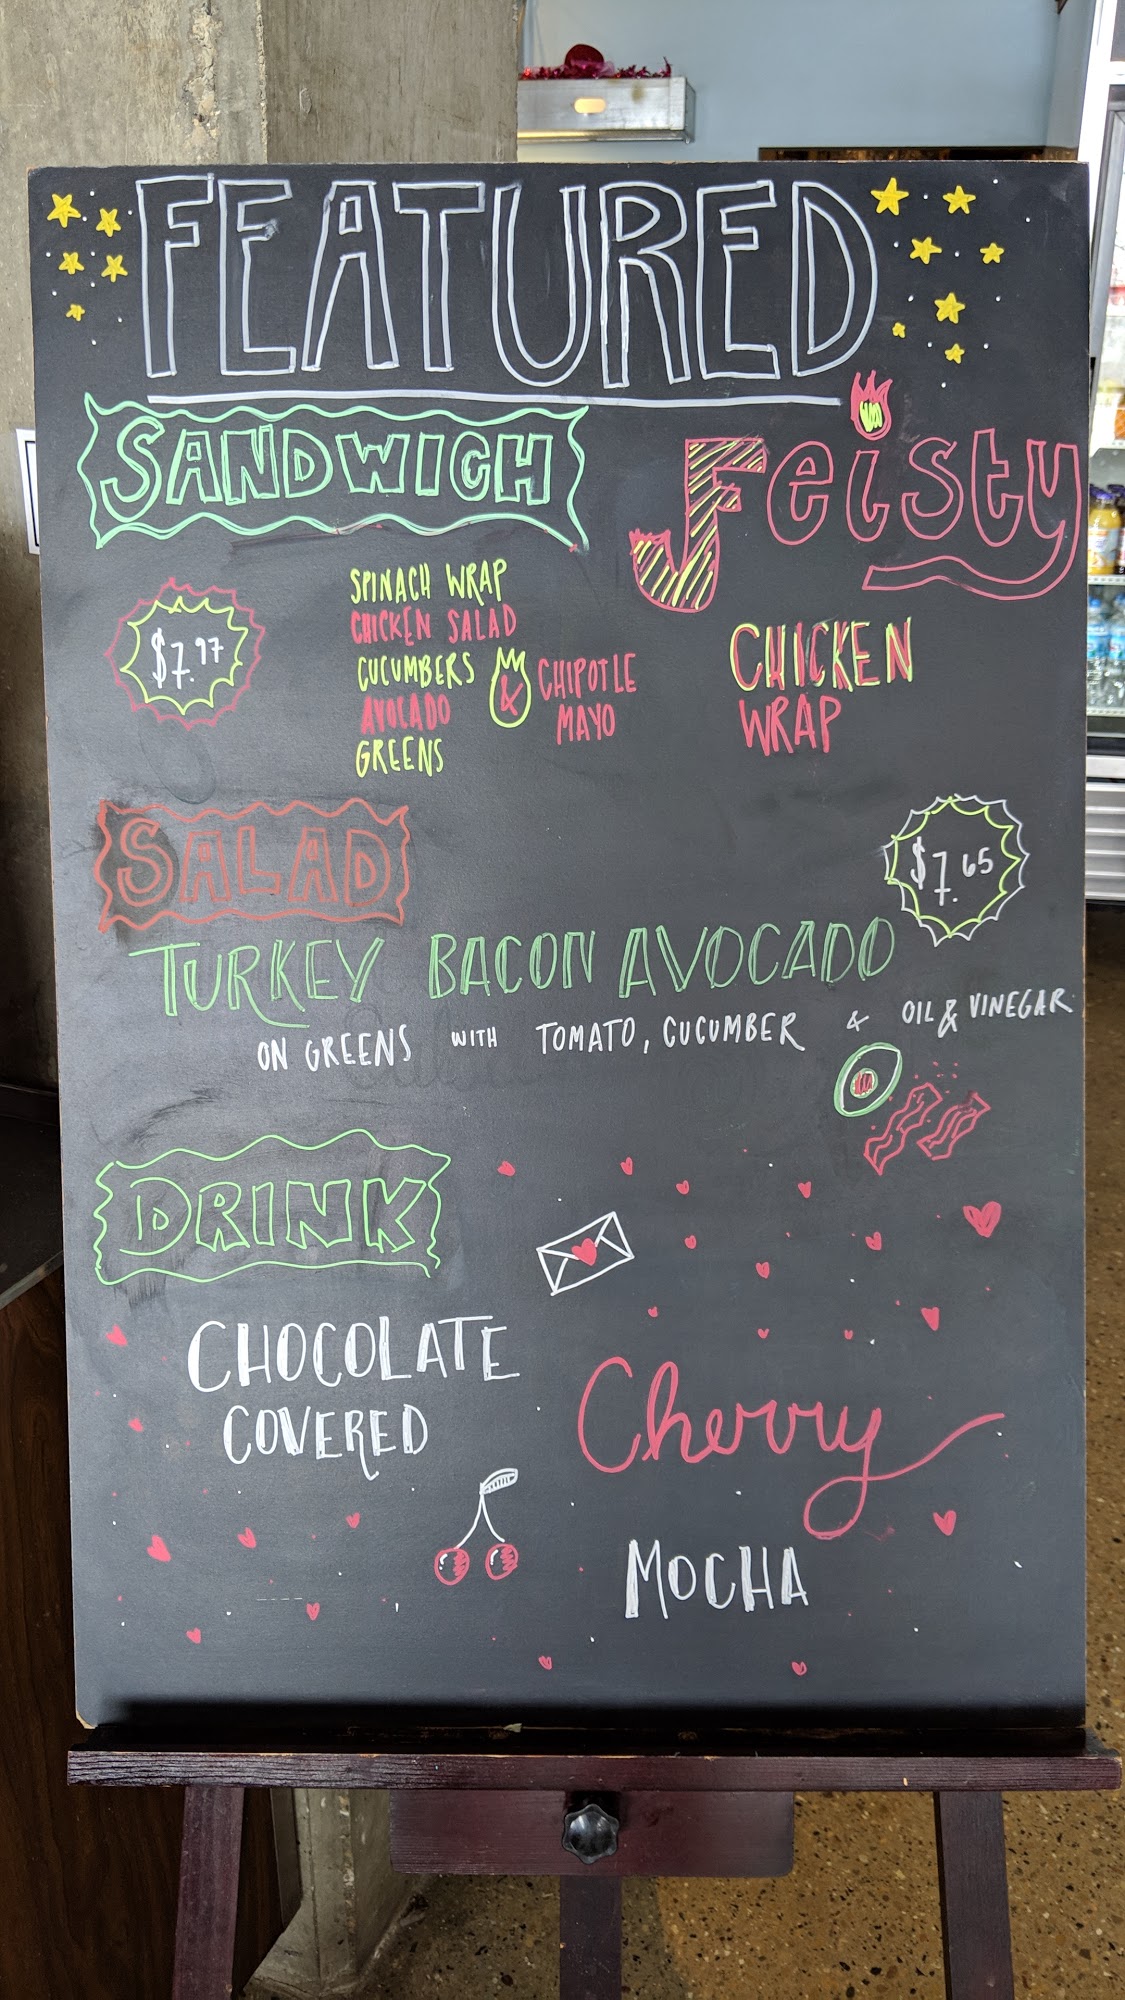 FEATURED
SANDWICH
Feisty
CHICKEN
WRAP
$7.97
SPINACH WRAP
CHICKEN SALAD
CUCUMBERS
AVOCADO
GREENS
& CHIPOTLE
MAYO
SALAD
$7.65
TURKEY BACON AVOCADO
ON GREENS WITH TOMATO, CUCUMBER & OIL & VINEGAR
DRINK
CHOCOLATE
COVERED
Cherry
MOCHA